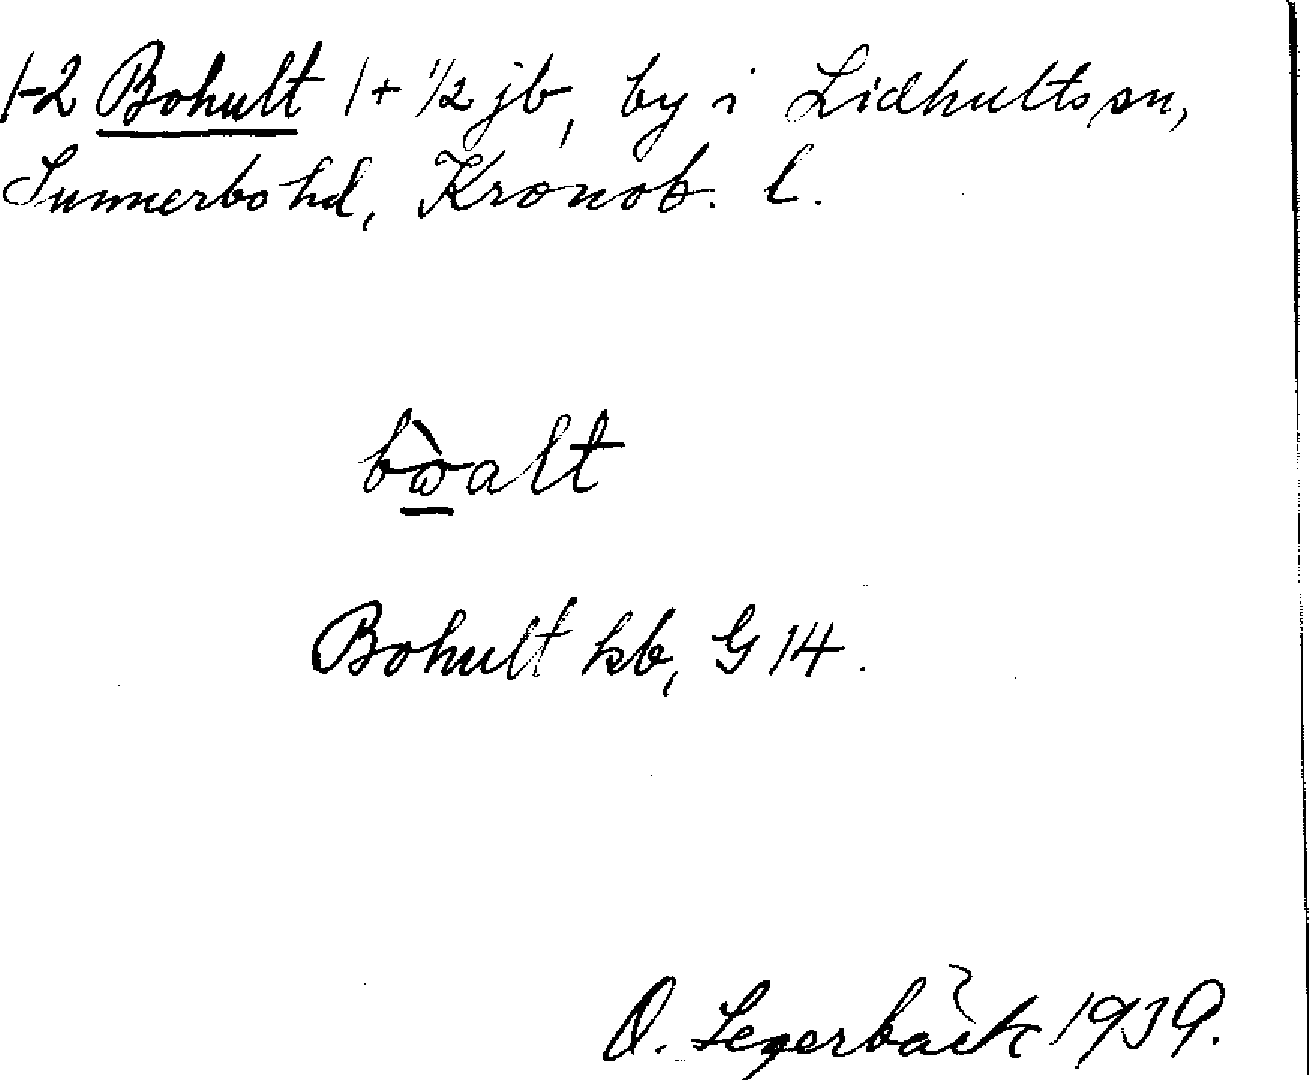 1-2 Bohult 1 + 1/2 jb, by i Lidhults sn,
Sunnerbo hd, Kronob. l.
bὼalt
Bohult kb, G 14.
O. 1939.